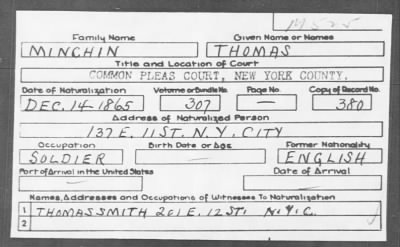 Family Name Given Name or Names
MINCHIN THOMAS
Title and Location of Court
COMMON PLEAS COURT, NEW YORK COUNTY.
Date of Naturalization Volume or Bundle No. Page No. Copy of Record No.
DEC. 14-1865 307 — 380
Address of Naturalized Person
137 E. 11 ST. N.Y. CITY
Occupation Birth Date or Age Former Nationality
SOLDIER — ENGLISH
Port of Arrival in the United States Date of Arrival
— —
Names, Addresses and Occupations of Witnesses To Naturalization
1 THOMAS SMITH 201 E. 12 ST. N.Y.C.
2